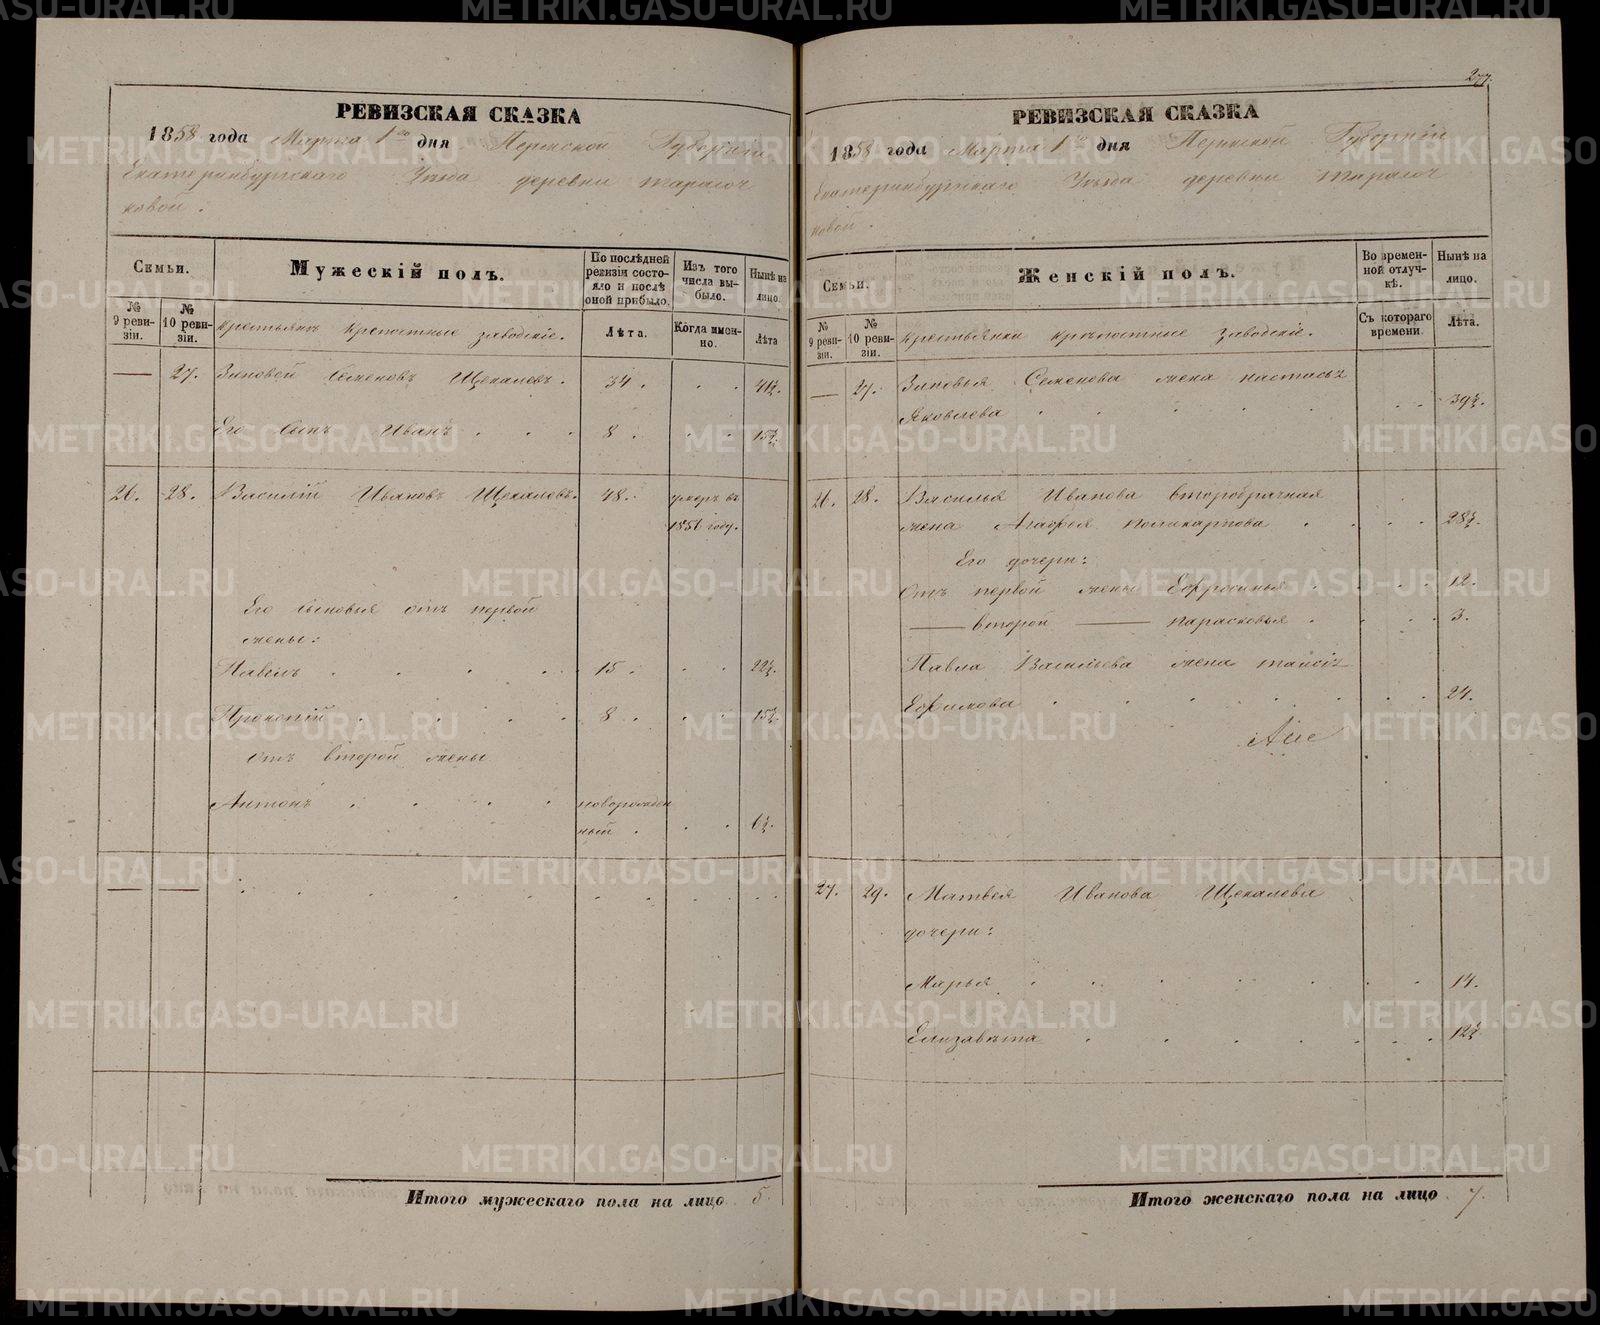 РЕВИЗСКАЯ СКАЗКА
1858 года Марта 1го дня Пермской Губернiи
Екатеринбургскаго Уѣзда деревни
ковой.
Семьи.
Мужескiй полъ.
По послѣдней ревизiи состояло и послѣ оной прибыло.
Изъ того числа выбыло.
Нынѣ на лицо.
№ 9 ревизiи.
№ 10 ревизiи.
Крестьянъ крепостные заводскiе.
Лѣта.
Когда именно.
Лѣта
— 27. Зиновей Семеновъ Щекалевъ. 34. . . 41½.
Его сынъ Иванъ . . . 8. . . 15½.
26. 28. Василiй Ивановъ Щекалевъ. 48. умеръ въ
1851 году.
Его сыновья отъ первой
жены:
Павелъ . . . . 15. . . 22½.
Прокопiй . . . . 8. . . 15½.
отъ второй жены
Антонъ . . . . новорожден
ный . . . 6½.
— —
Итого мужескаго пола на лицо 5.
277.
РЕВИЗСКАЯ СКАЗКА
1858 года Марта 1го дня Пермской Губернiи
Екатеринбургскаго Уѣзда деревни
ковой.
Семьи.
Женскiй полъ.
Во временной отлучкѣ.
Нынѣ на лицо.
№ 9 ревизiи.
№ 10 ревизiи.
Крестьянки крѣпостные заводскiе.
Съ котораго времени.
Лѣта.
— 27. Зиновья Семенова жена Настасья
Яковлева . . . . . . 39½.
26. 28. Василья Иванова второбрачная
жена Агафья Поликарпова . . . . 28½.
Его дочери:
Отъ первой жены Ефросинья . . . 12.
— второй — Парасковья . . . . 3.
Павла Васильева жена
Ефимова . . . . . . 24.
27. 29. Матвея Иванова Щекалева
дочери:
Марья . . . . . . 14.
Елизавѣта . . . . . . 12½.
Итого женскаго пола на лицо 7.
METRIKI.GASO-URAL.RU